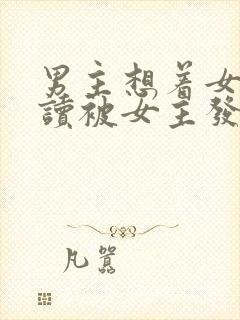 男主想着女
讀被女主發
凡囂